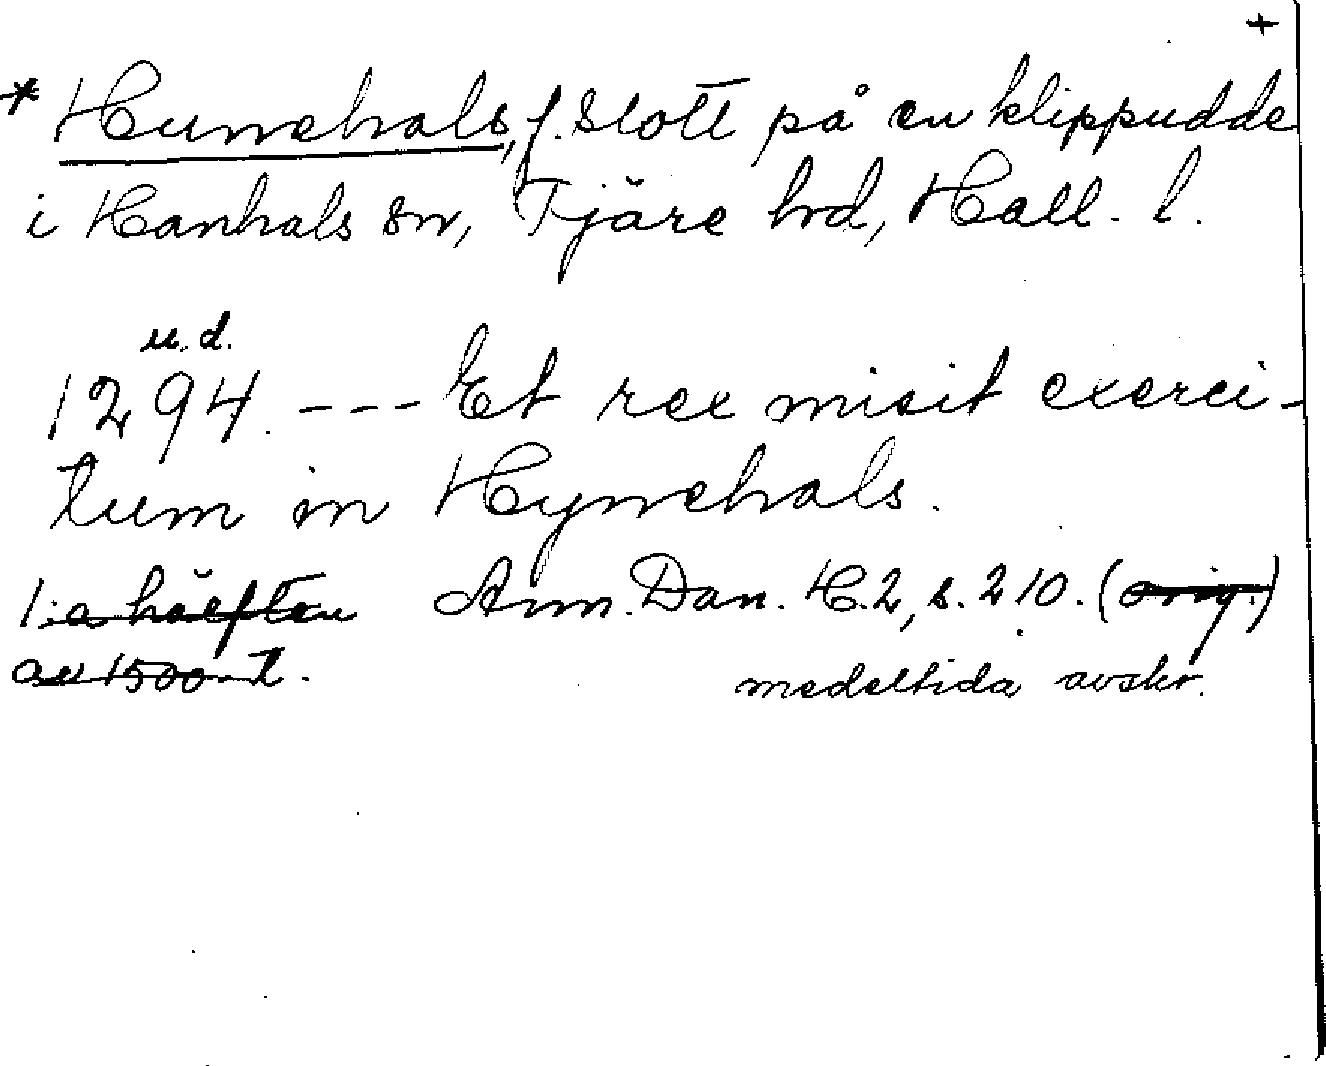 +
* Hunehals, f. slott på en klippudde
i Hanhals sn, Fjäre hd, Hall. l.
u. d.
1294. --- Et rex misit exerci-
tum in Hynehals.
1:a hälften Ann. Dan. H. 2, s. 210. (orig.)
av 1500-t. medeltida avskr.